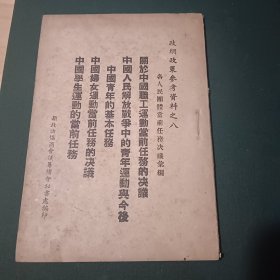 政綱政策參考資料之八
各人民團體當前任務决議彙編
關於中國職工運動當前任務的决議
中國人民解放戰爭中的青年運動與今後
中國青年的基本任務
中國婦女運動當前任務的决議
中國學生運動的當前任務
新政治協商會議籌備會秘書處編印